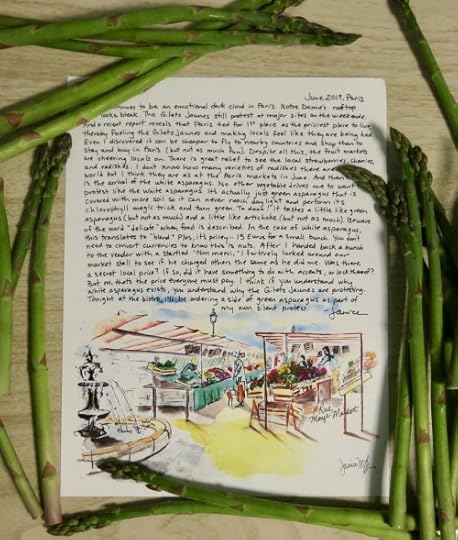 June 2019, Paris
continues to be an emotional dark cloud in Paris. Notre Dame's rooftop
looks bleak. The Gilets Jaunes still protest at major sites on the weekends.
And a recent report reveals that Paris tied for 1st place as the priciest place to live
thereby fueling the Gilets Jaunes and making locals feel like they are being had.
Even I discovered it can be cheaper to fly to nearby countries and shop than to
stay and buy in Paris (but not as much fun). Despite all this, the fruit markets
are cheering locals on. There is great relief to see the local strawberries, cherries,
and radishes. I don't know how many varieties of radishes there are
world but I think they are all at the Paris markets in June. And there
is the arrival of the white asparagus. No other vegetable drives me to want
protest like the white asparagus. It's actually just green asparagus that is
covered with more soil so it can never reach day light and perform its
chlorophyll magic trick and turn green. Ta daa! It tastes a little like green
asparagus (but not as much) and a little like artichoke (but not as much). Beware
of the word "delicate" when food is described. In the case of white asparagus,
this translates to "bland". Plus, it's pricey - 15 Euros for a small bunch. You don't
need to convert currencies to know this is nuts. After I handed back a bunch
to the vendor with a startled "Non merci," I furtively lurked around our
market stall to see if he charged others the same as he did me. Was there
a secret local price? If so, did it have something to do with accents, or lack thereof?
But no, that's the price everyone must pay. I think if you understand why
white asparagus exists, you understand why the Gilets Jaunes are protesting.
Tonight at the bistro, I'll be ordering a side of green asparagus as part of
my own silent protest. -Janice
Rue
Monge Market